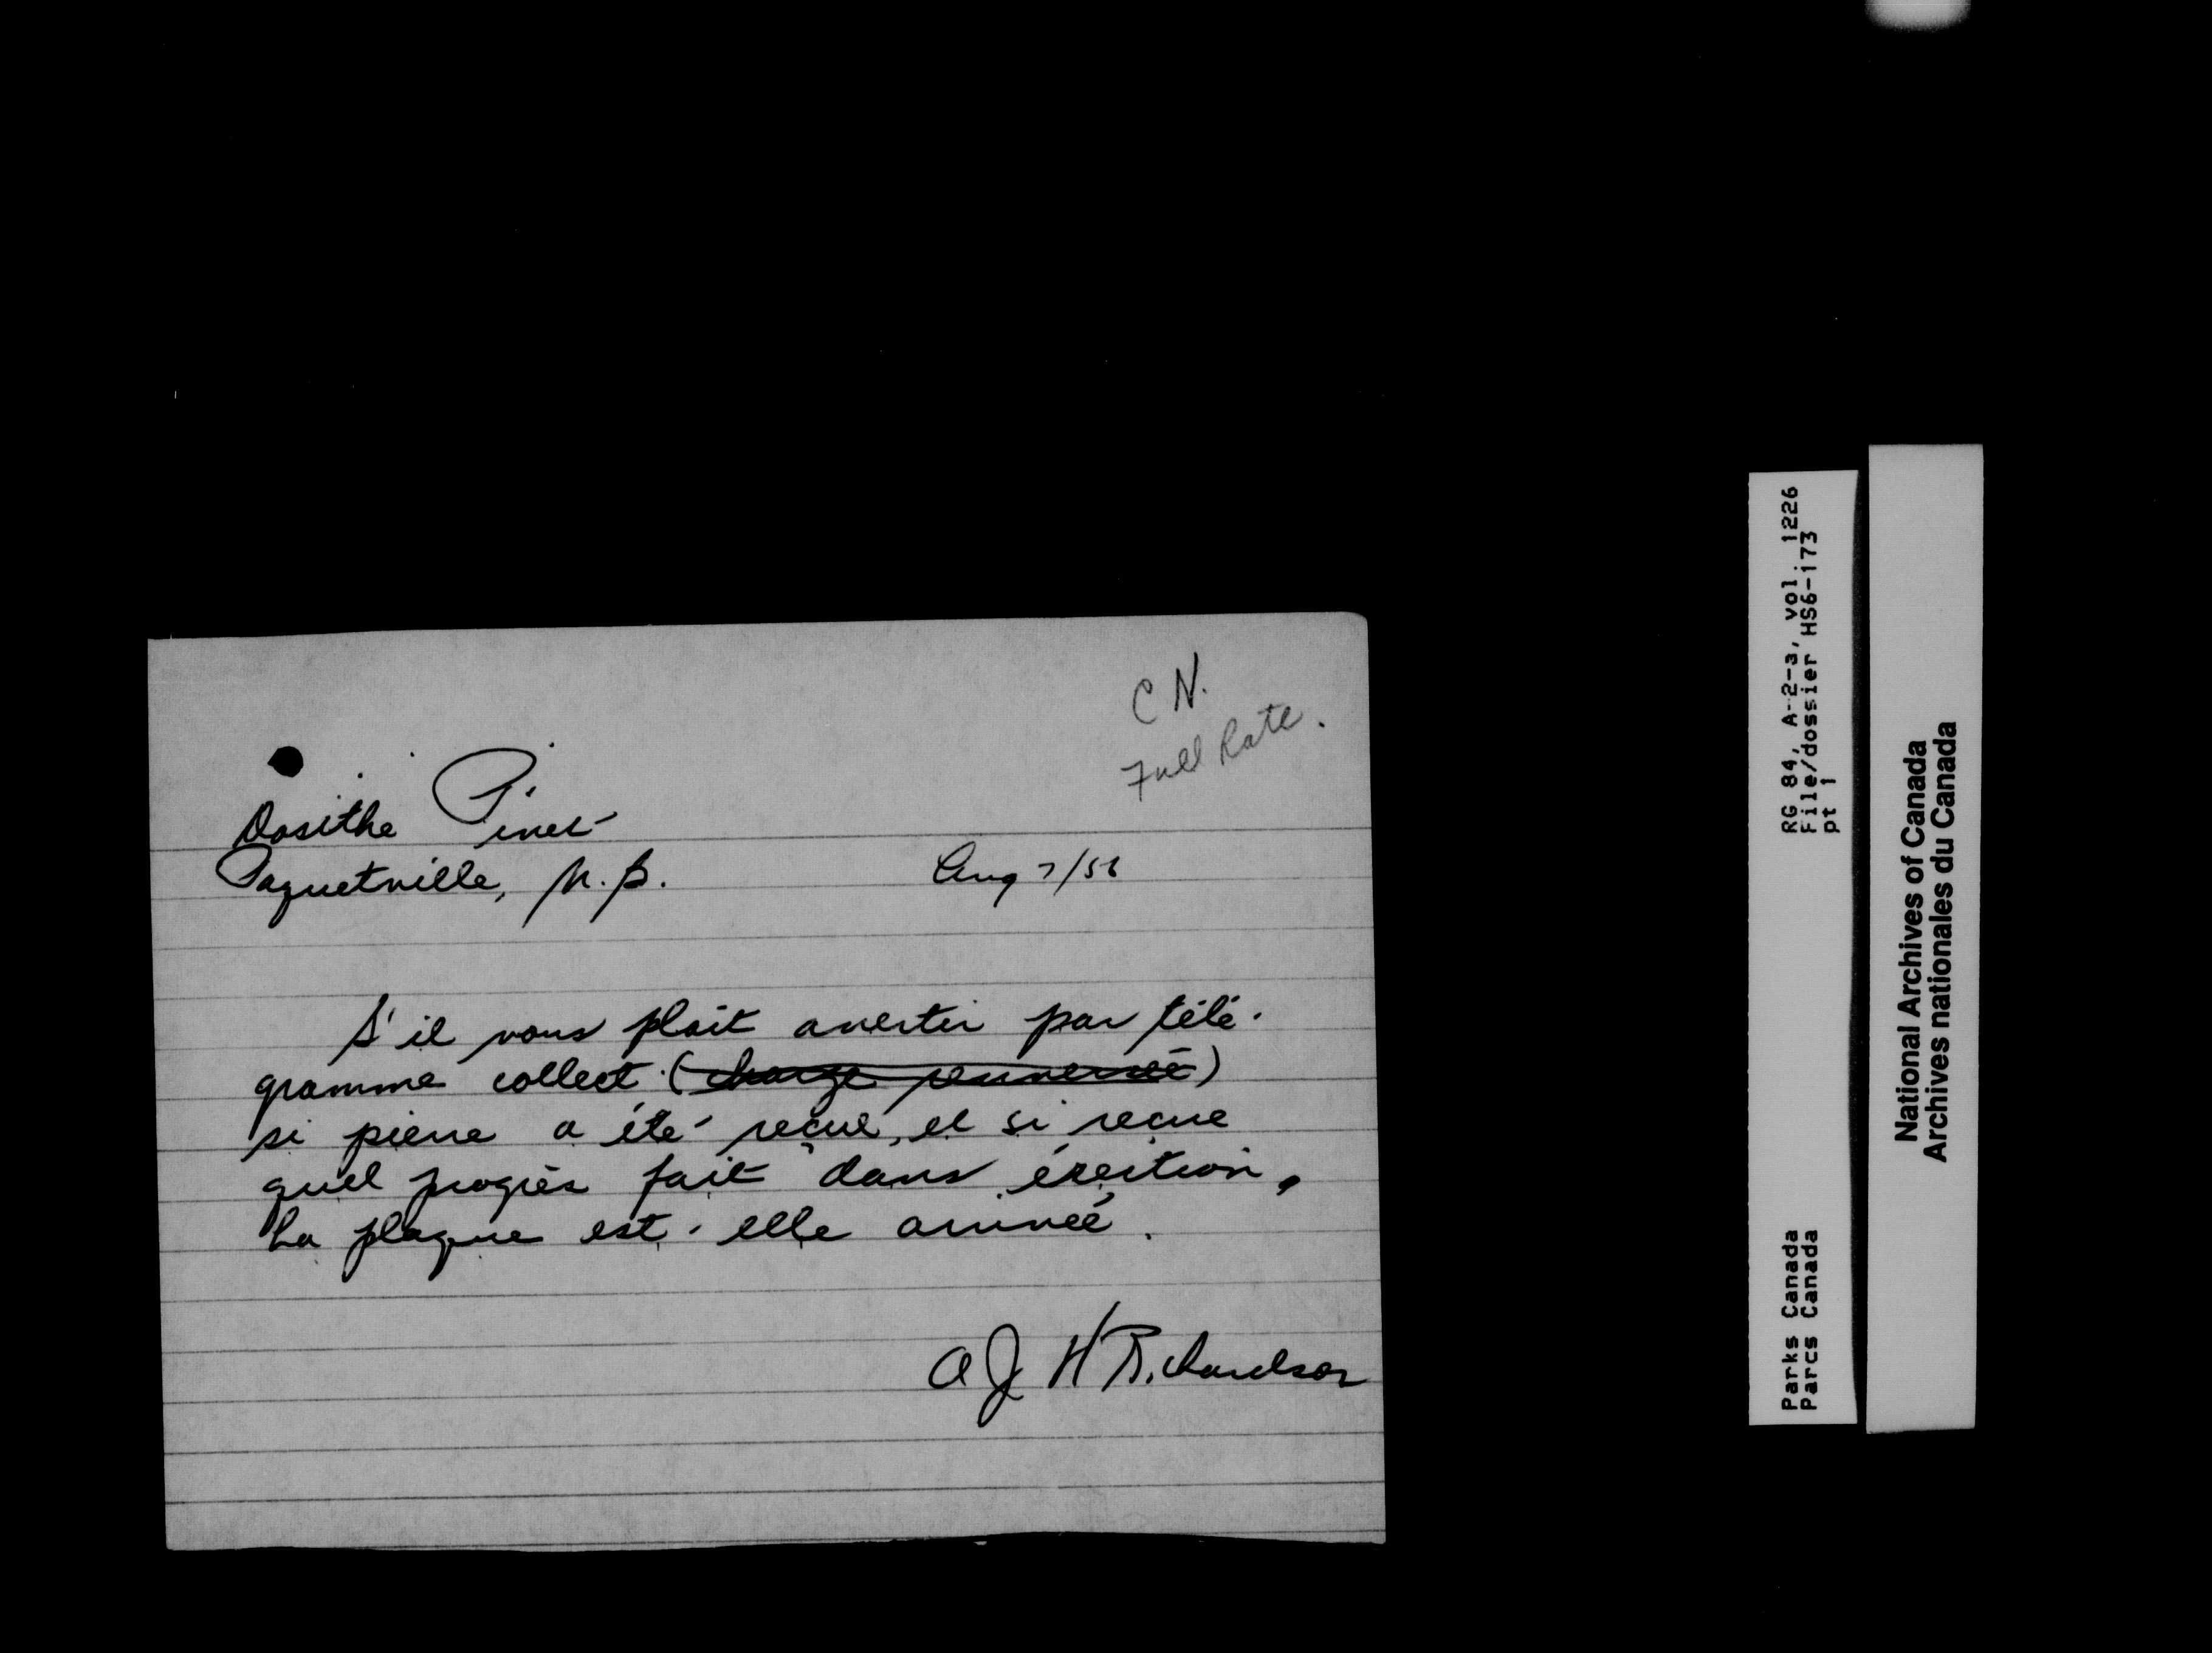 C N.
Full Rate.
Dosithe Pinet
Paquetville, N.B.
Aug 7/56
S'il vous plait avertir par télé-
gramme collect (charge renversée)
si pierre a été reçue, et si reçue
quel progrès fait dans érection.
La plaque est-elle arrivée.
A J H Richardson
RG 84, A-2-a, vol. 1226
File/dossier HS6-173
pt 1
Parks Canada
Parcs Canada
National Archives of Canada
Archives nationales du Canada